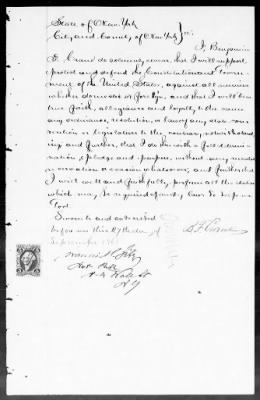 State of New York
City and County of New York } ss.
I, Benjamin
F. do solemnly swear, that I will support
protect and defend the Constitution and Govern-
ment of the United States, against all enemies
whether domestic or foreign, and that I will bear
true faith, allegiance and loyalty to the same
any ordinance, resolution or law of any State con-
vention or legislature to the contrary notwithstand-
ing and further, that I do this with a full determi-
nation, pledge and purpose, without any mental
reservation or evasion whatsoever; and further that
I will well and faithfully perform all the duties
which may be required of me by law. So help me
God.
Sworn to and subscribed
before me this 27th day of
September 186
Not. Pub.
N.Y.